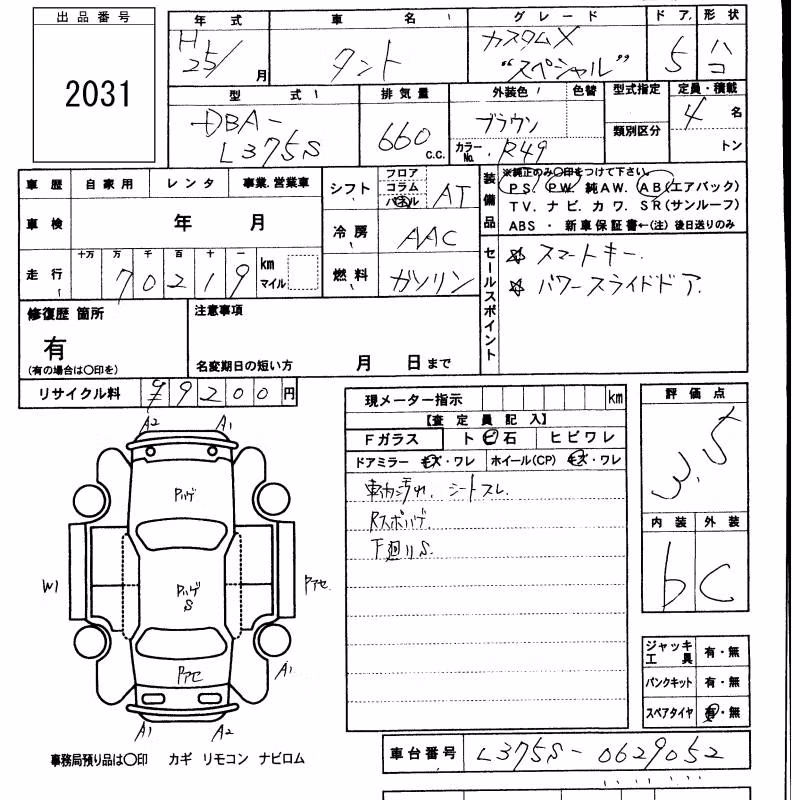 出品番号
2031
年式 車名 グレード ドア 形状
H25/ 月 タント カスタムX "スペシャル" 5 ハコ
型式 排気量 外装色 色替 型式指定 定員・積載
DBA-L375S 660 c.c. ブラウン カラーNo. R49 類別区分 4 名 トン
車歴 自家用 レンタ 事業.営業車
車検 年 月
走行 十万 万 千 百 十 一
70219 km マイル
シフト フロア コラム パネル AT
冷房 AAC
燃料 ガソリン
装備品
※純正のみ〇印をつけて下さい。
PS. PW. 純AW. AB(エアバック)
TV. ナビ. カワ. SR(サンルーフ)
ABS ・ 新車保証書←(注) 後日送りのみ
セールスポイント
☆ スマートキー.
☆ パワースライドドア.
修復歴 箇所
有
(有の場合は〇印を)
注意事項
名変期日の短い方 月 日まで
リサイクル料 ¥9200 円
現メーター指示 km
【査定員記入】
Fガラス ト ビ 石 ヒビワレ
ドアミラー キズ・ワレ ホイール(CP) キズ・ワレ
車内汚れ. シートスレ.
Rスポハゲ
下廻りS.
評価点
3.5
内装 外装
b C
ジャッキ工具 有・無
パンクキット 有・無
スペアタイヤ 有・無
A2 A1
Pハゲ
W1 PハゲS Pアセ.
Pアセ
A1
A1 A2
事務局預り品は〇印 カギ リモコン ナビロム
車台番号 L375S-0629052